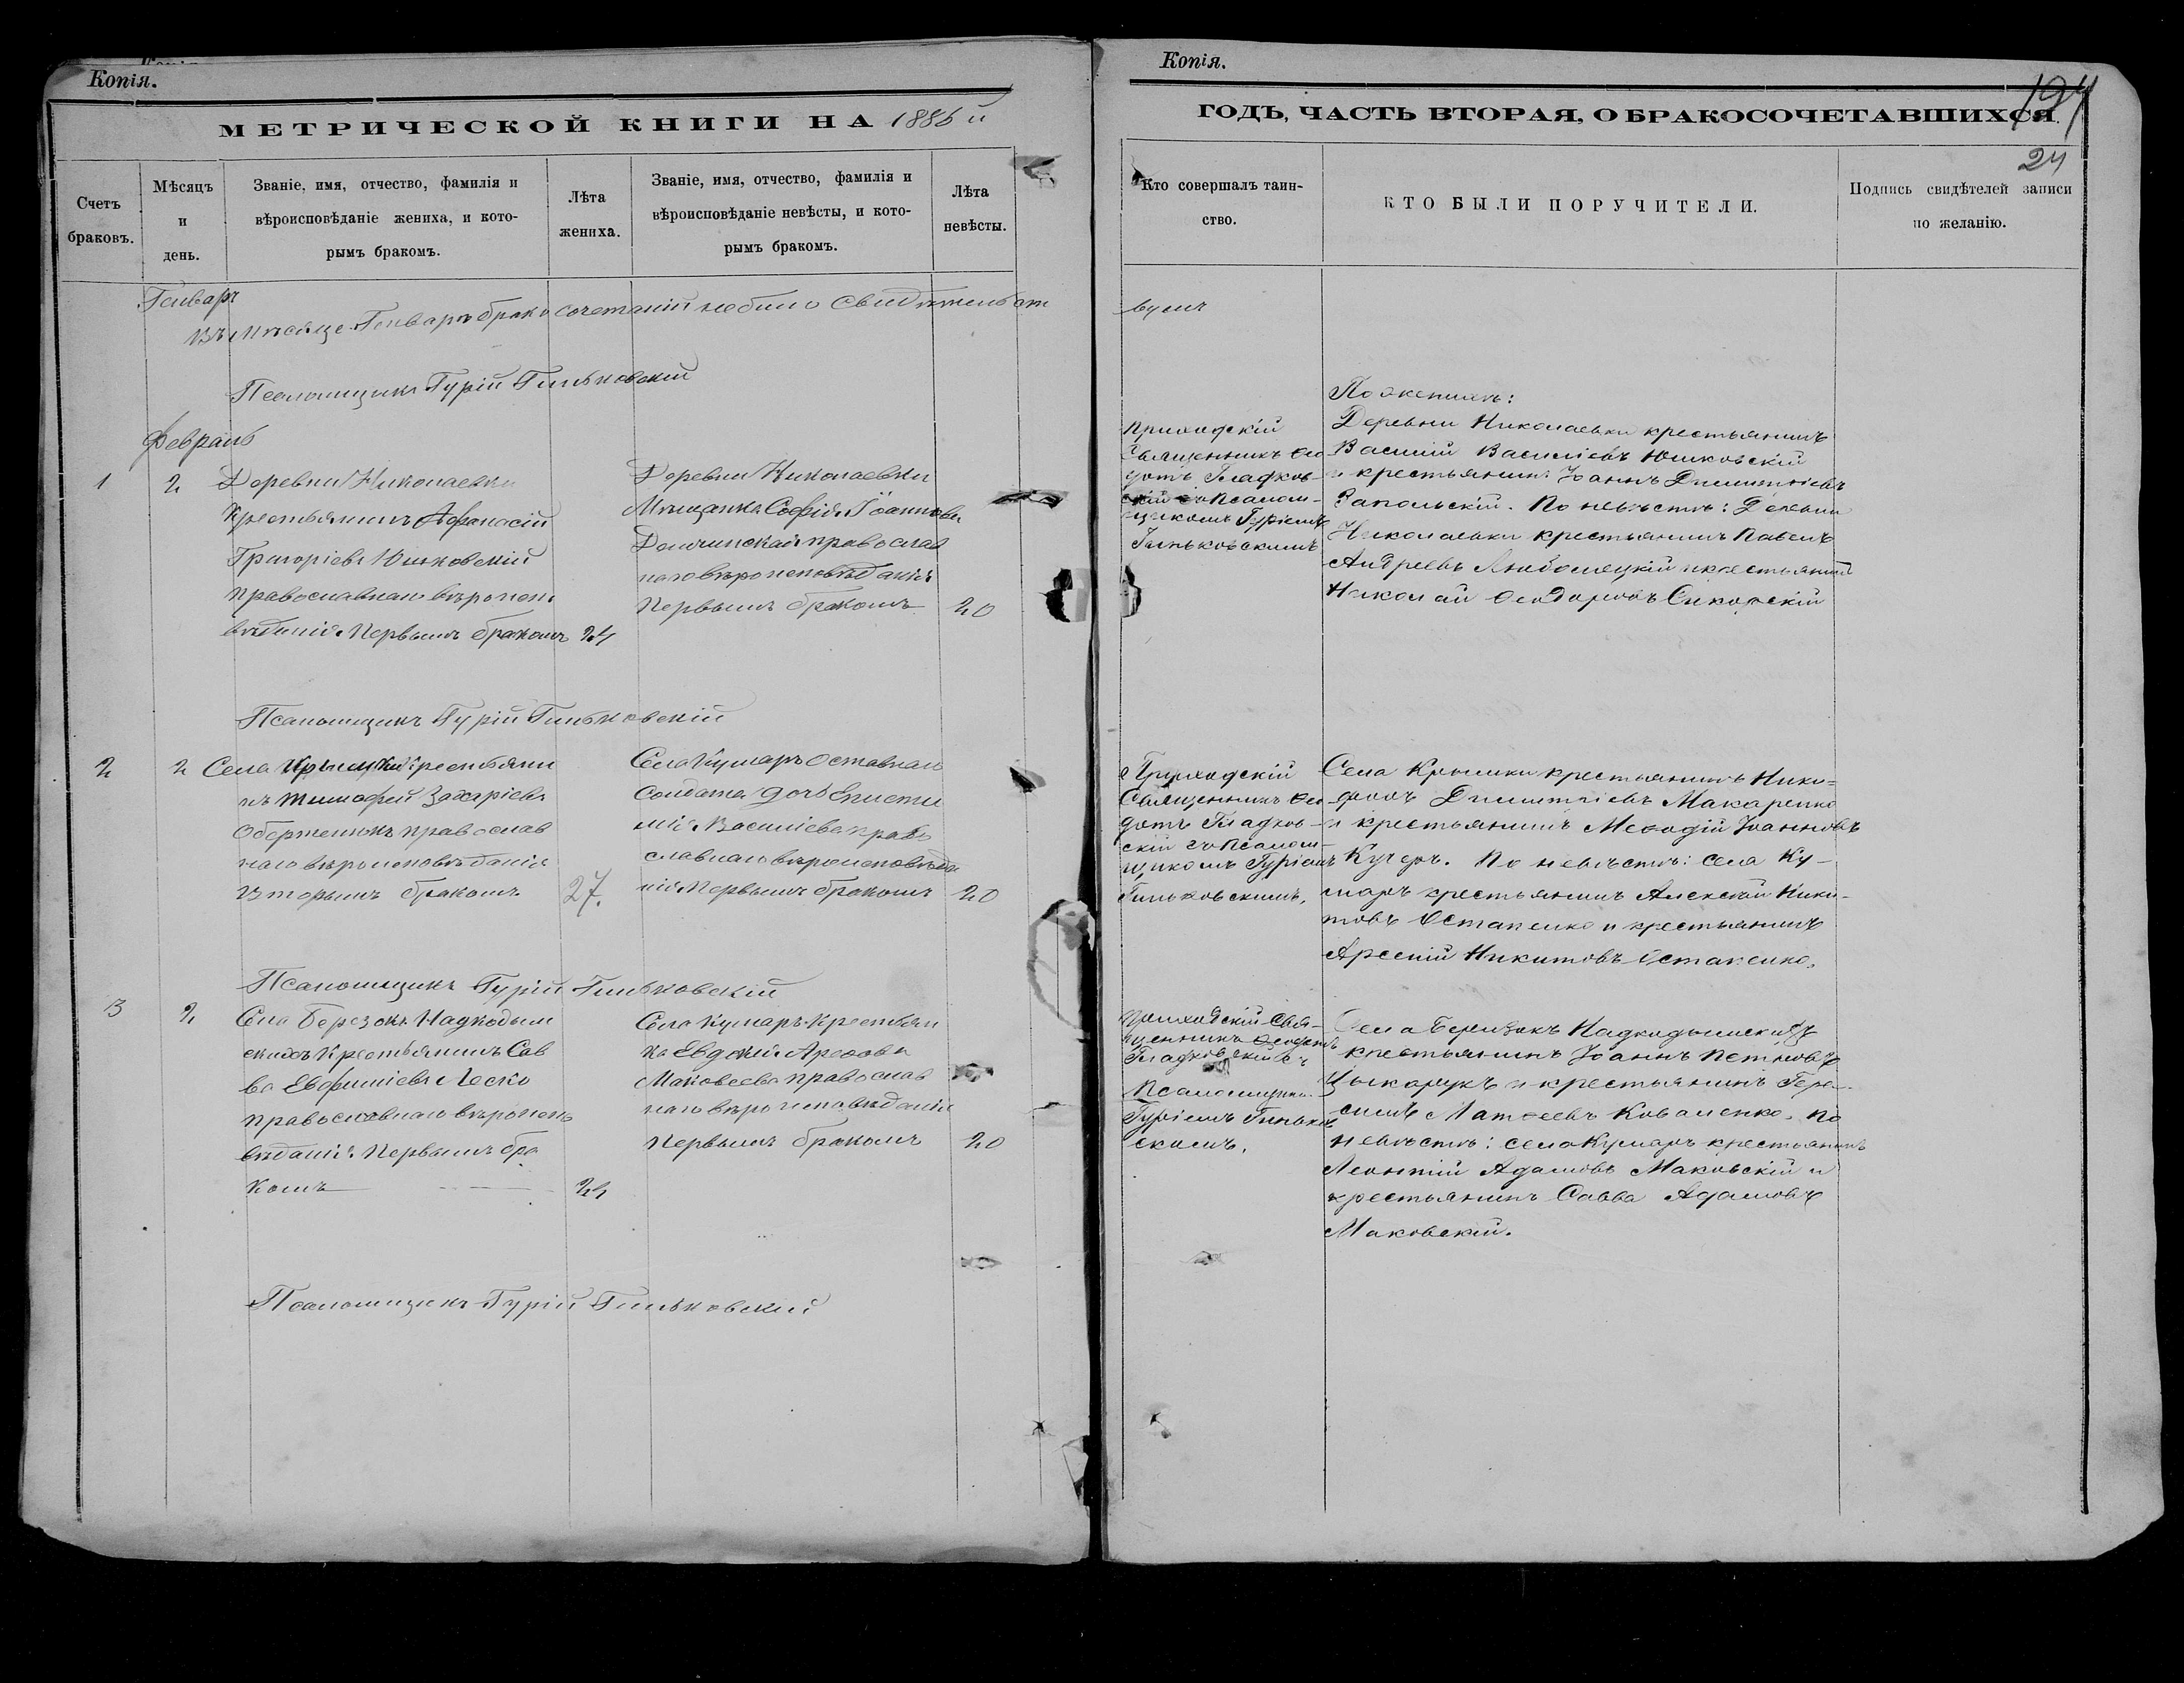 Копія.
МЕТРИЧЕСКОЙ КНИГИ НА 1886 й
Счетъ браковъ.
Мѣсяцъ и день.
Званіе, имя, отчество, фамилія и
вѣроисповѣданіе жениха, и кото-
рымъ бракомъ.
Лѣта жениха.
Званіе, имя, отчество, фамилія и
вѣроисповѣданіе невѣсты, и кото-
рымъ бракомъ.
Лѣта невѣсты.
Генваръ
Въ мѣсяце Генварѣ брако сочетаній небыло Свидѣтельст
Псаломщикъ Гурій Гиньковскій
Февраль
1
2
Деревни Николаевки
Крестьянинъ Афанасій
Григоріевъ Юшковскій
православнаго вѣроиспо
вѣданія Первымъ бракомъ
24
Деревни Николаевки
Мѣщанка Софія Іоаннова
православ
наго вѣроисповѣданія
Первымъ бракомъ
20
Псаломщикъ Гурій Гиньковскій
2
2
Села Крымки Крестьяни
нъ Тимофей Захаріевъ
православ
наго вѣроисповѣданія
Вторымъ бракомъ
27.
Села Кумаръ Оставнаго
Солдата дочь Еписти
мія Василіева право
славнаго вѣроисповѣда
нія Первымъ бракомъ
20
Псаломщикъ Гурій Гиньковскій
3
2
Села Березокъ Надкодым
скихъ Крестьянинъ Сав
ва Евфиміевъ Леско
православнаго вѣроиспо
вѣданія Первымъ бра
комъ
24
Села Кумаръ Крестьян
ка Евдокія
Маковеева православ
наго вѣроисповѣданія
Первымъ бракомъ
20
Псаломщикъ Гурій Гиньковскій
Копія.
194
ГОДЪ, ЧАСТЬ ВТОРАЯ, О БРАКОСОЧЕТАВШИХСЯ.
24
Кто совершалъ таин-
ство.
КТО БЫЛИ ПОРУЧИТЕЛИ.
Подпись свидѣтелей записи
по желанію.
вуемъ
Приходскій
Священникъ Ѳео
дотъ Гладков-
скій съ Псалом-
щикомъ Гуріемъ
Гиньковскимъ
По женихѣ:
Деревни Николаевки крестьянинъ
Василій Василіевъ Юшковскій
и крестьянинъ Іоаннъ Димитріевъ
Запольскій. По невѣстѣ: Деревни
Николаевки крестьянинъ Павелъ
Андреевъ и крестьянинъ
Николай Ѳеодоровъ Сикорскій
Приходскій
Священникъ Ѳео
дотъ Гладков-
скій съ Псалом-
щикомъ Гуріемъ
Гиньковскимъ.
Села Крымки крестьянинъ Ники-
форъ Димитріевъ Макаренко
и крестьянинъ Меѳодій Іоанновъ
Кучеръ. По невѣстѣ: Села Ку-
маръ крестьянинъ Алексѣй Ники-
товъ Остапенко и крестьянинъ
Арсеній Никитовъ Остапенко.
Приходскій Свя-
щенникъ Ѳеодотъ
Гладковскій съ
Псаломщико
Гуріемъ Гиньков
скимъ.
Села Березокъ Надкодымскихъ
крестьянинъ Іоаннъ Петровъ
и крестьянинъ Гера-
симъ Матѳеевъ Коваленко. По
невѣстѣ: села Кумаръ крестьянинъ
Леонтій Адамовъ Маковскій и
крестьянинъ Савва Адамовъ
Маковскій.